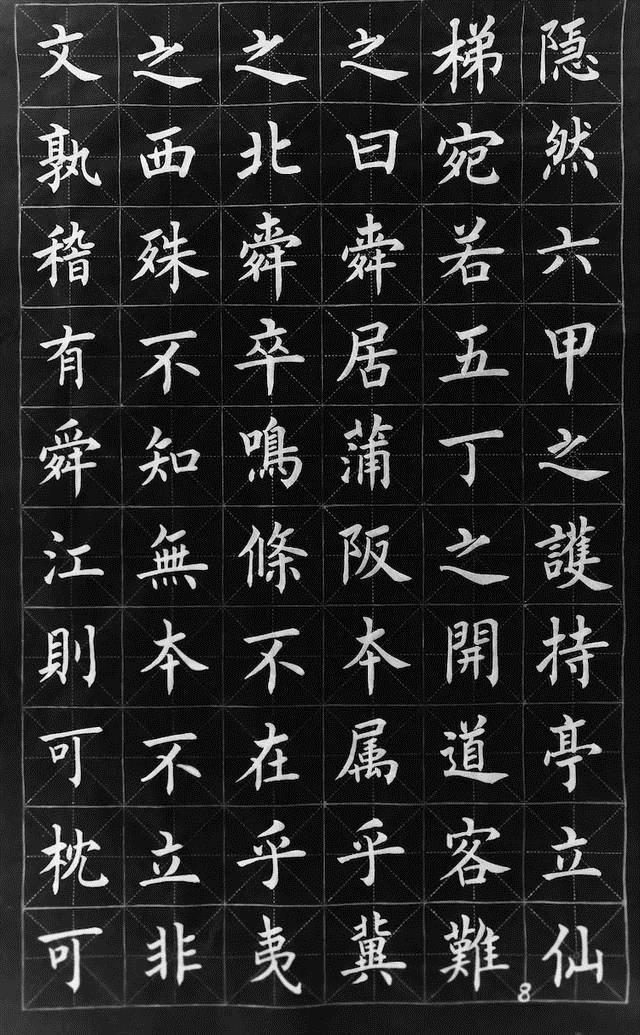 隱然六甲之護持亭立仙
梯宛若五丁之開道客難
之曰舜居蒲阪本属乎冀
之北舜卒鳴條不在乎夷
之西殊不知無本不立非
文孰稽有舜江則可枕可
8